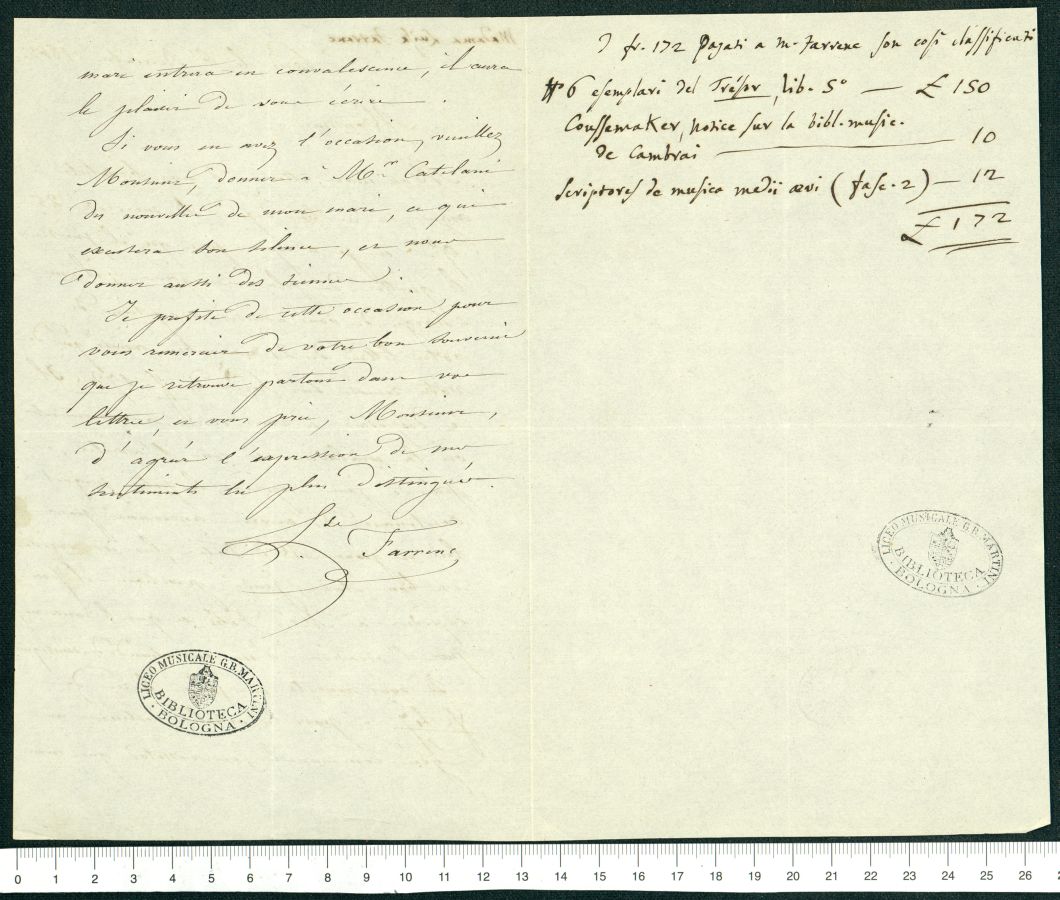 mari entrera en convalescence, il aura
le plaisir de vous écrire.
Si vous en avez l'occasion, veuillez
Monsieur, donner à Mr. Catelani
des nouvelles de mon mari, ce qui
excusera son silence, et nous
donner aussi des siennes.
Je profite de cette occasion pour
vous remercier de votre bon souvenir
que je retrouve partout dans vos
lettres, et vous prie, Monsieur,
d'agréer l'expression de mes
sentiments les plus distingués.
Lse Farrenc
LICEO MUSICALE G.B. MARTINI
BIBLIOTECA
BOLOGNA
I fr. 172 pagati a Mr. Farrenc son così classificati
6 esemplari del Trésor, lib. 5° — £ 150
Coussemaker, Notice sur la bibl. music.
de Cambrai — 10
Scriptores de musica medii ævi (fasc. 2) — 12
£ 172
LICEO MUSICALE G.B. MARTINI
BIBLIOTECA
BOLOGNA
0 1 2 3 4 5 6 7 8 9 10 11 12 13 14 15 16 17 18 19 20 21 22 23 24 25 26